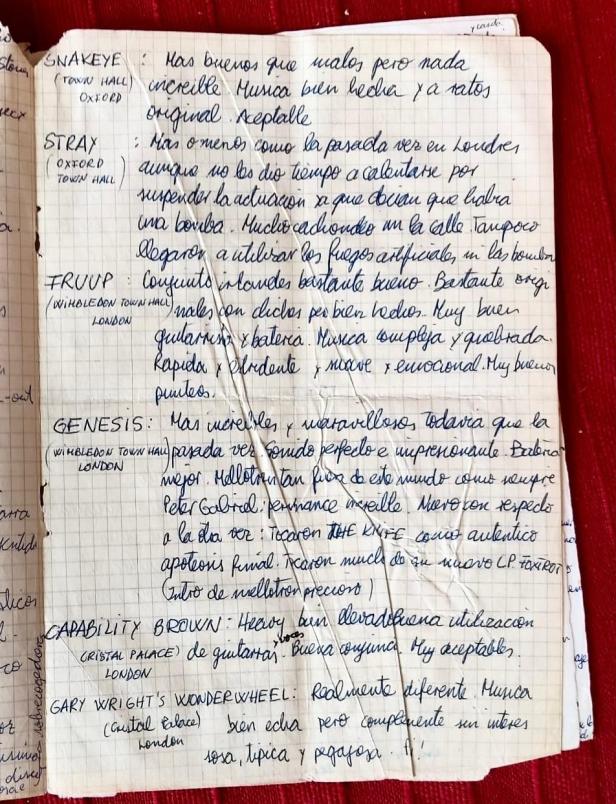 SNAKEYE : Mas buenos que malos pero nada
(TOWN HALL) increible. Musica bien hecha y a ratos
OXFORD original. Aceptable
STRAY : Mas o menos como la pasada vez en Londres
(OXFORD aunque no les dio tiempo a calentarse por
TOWN HALL) suspender la actuacion ya que decian que habia
una bomba. Mucho cachondeo en la calle. Tampoco
llegaron a utilizar los fuegos artificiales ni las bombas
FRUUP : Conjunto irlandes bastante bueno. Bastante origi
(WIMBLEDON TOWN HALL) nales con dichos bien hechos. Muy buen
LONDON guitarrista y bateria. Musica compleja y quebrada.
Rapida y estridente y suave y emocional. Muy buenos
punteos.
GENESIS : Mas increibles y maravillosos todavia que la
(WIMBLEDON TOWN HALL) pasada vez. Sonido perfecto e impresionante. Bateria
LONDON mejor. Mellotron tan fuera de este mundo como siempre
Peter Gabriel: performance increible. Nuevo con respecto
a la otra vez : Tocaron THE KNIFE como autentico
apoteosis final. Tocaron mucho de su nuevo LP. FOXTROT
(Intro de mellotron precioso)
CAPABILITY BROWN : Heavy bien llevado buena utilización
(CRISTAL PALACE) de guitarras y voces. Buena conjuncion. Muy aceptables.
LONDON
GARY WRIGHT'S WONDERWHEEL : Realmente diferente. Musica
(Cristal Palace) bien echa pero completamente sin interes
London sosa, tipica y pegajosa.
sobrecogedora